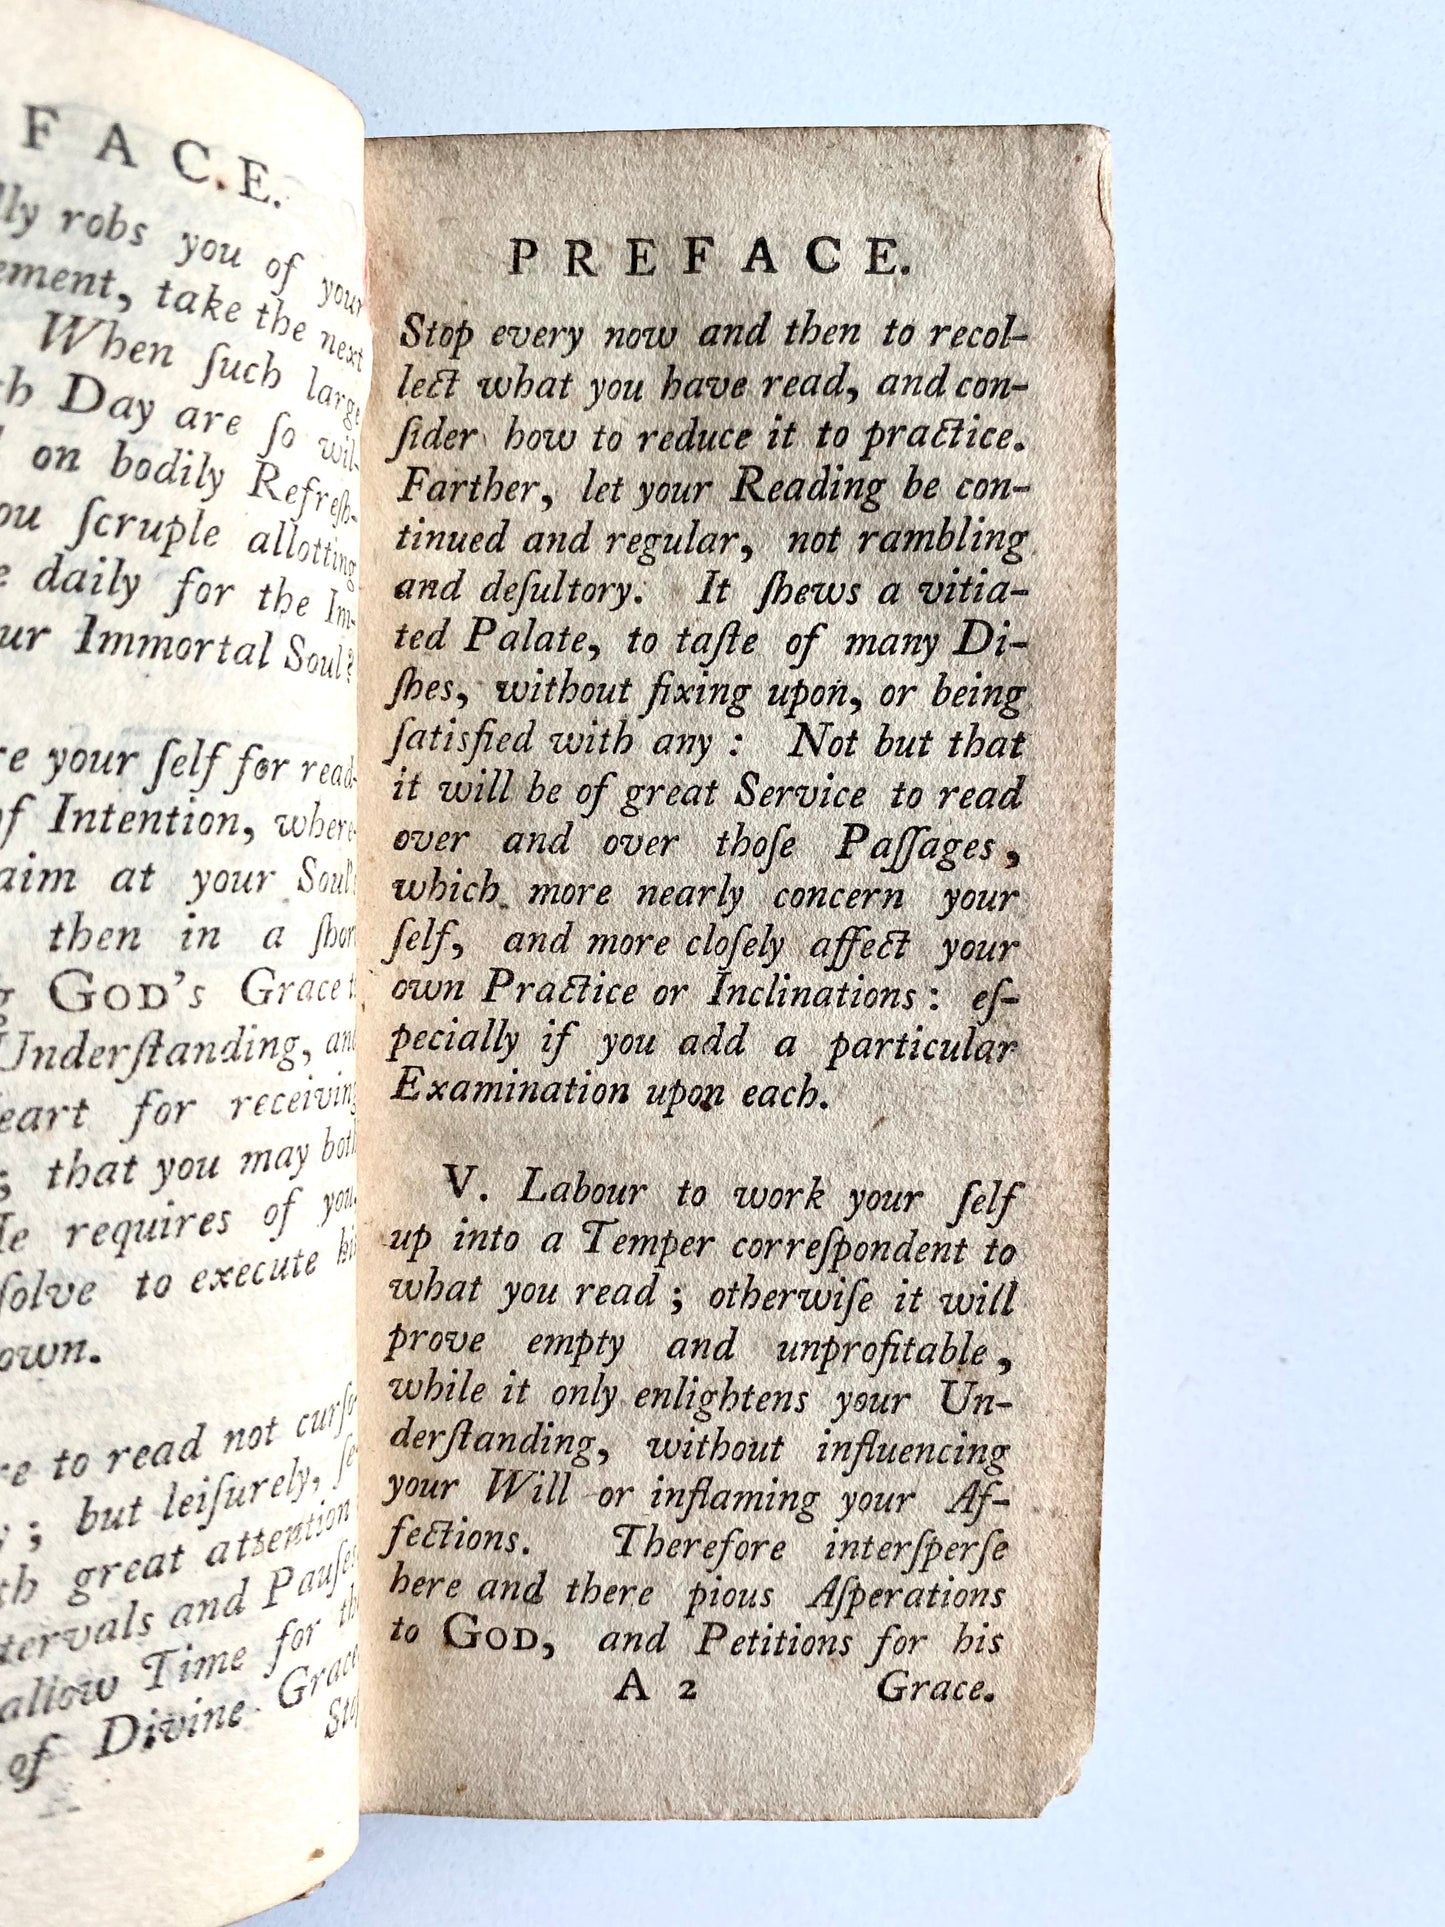 FACE.
robs you of your
take the next
When ſuch large
Day are ſo wil-
on bodily Refreſh-
ſcruple allotting
daily for the Im-
Immortal Soul?
your ſelf for read-
of Intention, where-
aim at your Soul's
then in a ſhort
GOD's Grace to
Underſtanding, and
for receiving
that you may both
requires of you,
to execute his
own.
to read not curſo-
but leiſurely, ſe-
great attention
and Pauſes
allow Time for the
of Divine Grace.
Stop
PREFACE.
Stop every now and then to recol-
lect what you have read, and con-
ſider how to reduce it to practice.
Farther, let your Reading be con-
tinued and regular, not rambling
and deſultory. It ſhews a vitia-
ted Palate, to taſte of many Di-
ſhes, without fixing upon, or being
ſatisfied with any : Not but that
it will be of great Service to read
over and over thoſe Paſſages,
which more nearly concern your
ſelf, and more cloſely affect your
own Practice or Inclinations : eſ-
pecially if you add a particular
Examination upon each.
V. Labour to work your ſelf
up into a Temper correſpondent to
what you read ; otherwiſe it will
prove empty and unprofitable,
while it only enlightens your Un-
derſtanding, without influencing
your Will or inflaming your Af-
fections. Therefore interſperſe
here and there pious Aſperations
to GOD, and Petitions for his
A 2 Grace.